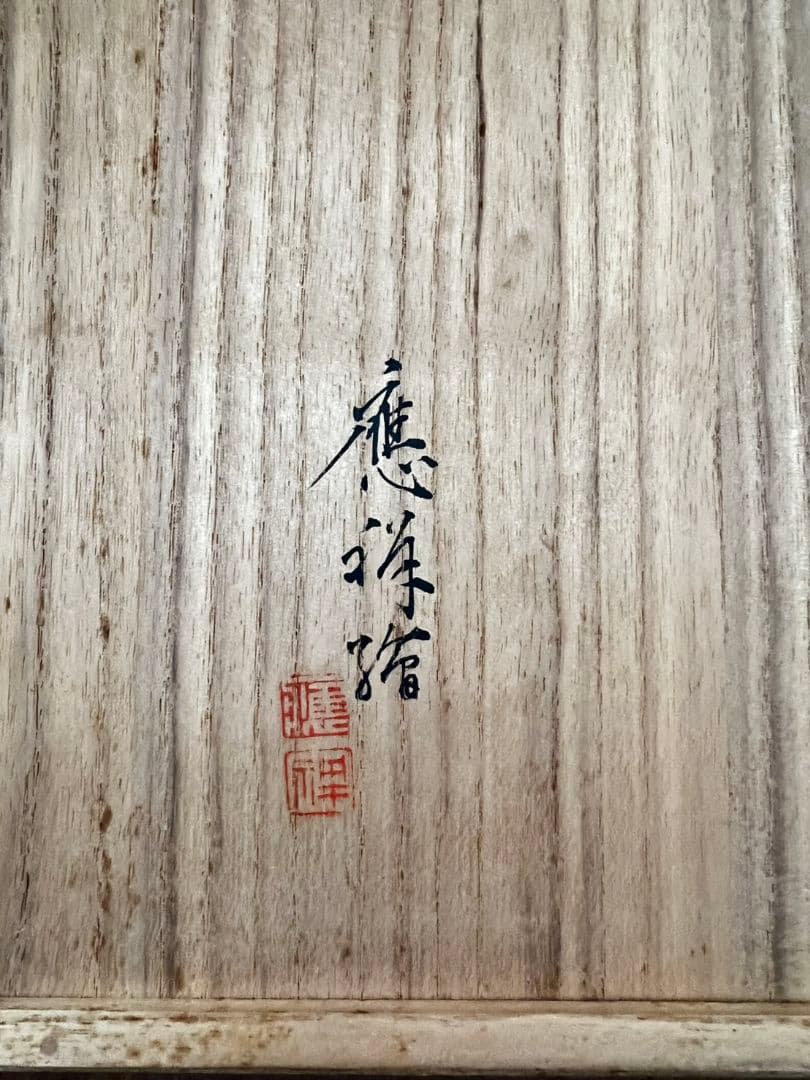 應祥繪
應
祥